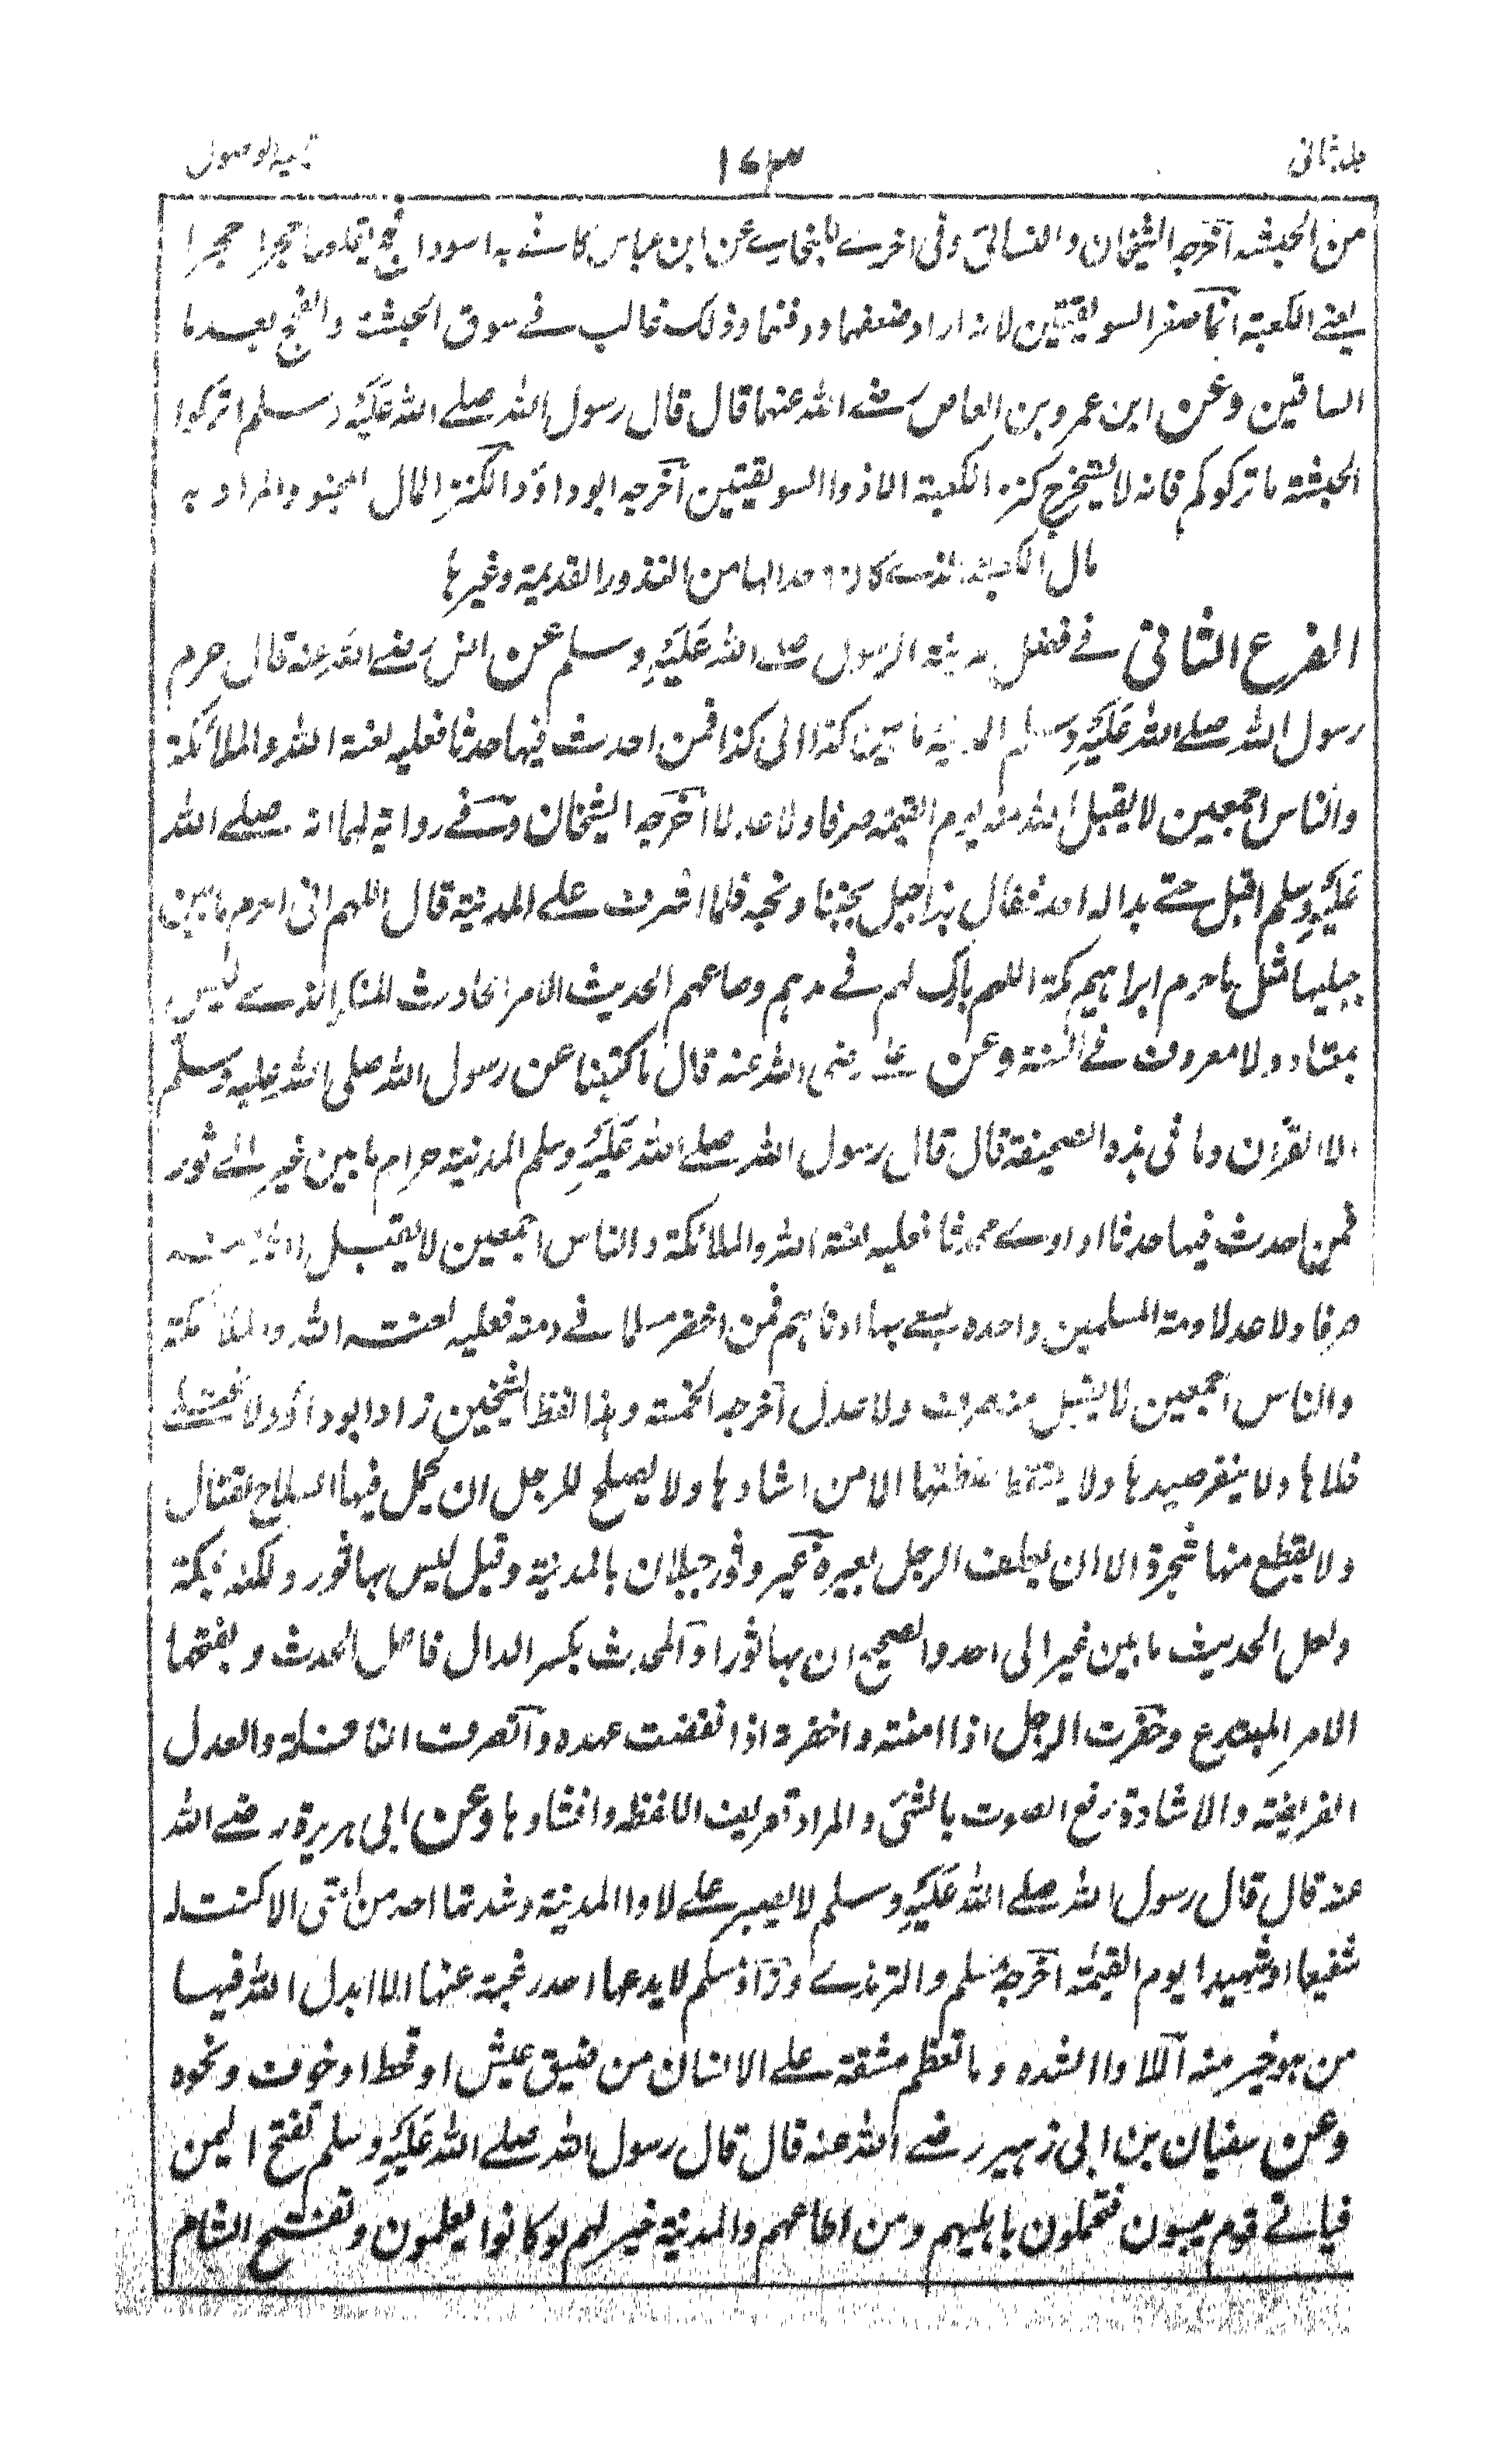 جلد ثانی ١٧٣ تيسير الوصول
من الحبشة أخرجه الشيخان والنسائى وفى اخرے للبخارے عن ابن عباس كانے به اسود افحج يقلعها حجرا حجرا
يعنے الكعبة انما صغر السويقتين لانه اراد ضعفهما ودقتهما وذلك غالب فے سوق الحبشة والفحج بعد ما
الساقين وعن ابن عمرو بن العاص رضے الله عنهما قال قال رسول الله صلے الله عليه وسلم اتركوا
الحبشة ما تركوكم فانه لا يستخرج كنز الكعبة الا ذو السويقتين أخرجه ابو داؤد الكنز المال المخبو والمراد به
مال الكعبة الذے كان معدا لها من النذور القديمة وغيرها
الفرع الثانى فے فضل مدينة الرسول صلے الله عليه وسلم عن انس رضے الله عنه قال حرم
رسول الله صلے الله عليه وسلم المدينة ما بين كذا الى كذا فمن احدث فيها حدثا فعليه لعنة الله والملائكة
والناس اجمعين لا يقبل الله منه يوم القيمة صرفا ولا عدلا أخرجه الشيخان وفے رواية لهما انه صلے الله
عليه وسلم اقبل حتے بدا له احد فقال هذا جبل يحبنا ونحبه فلما اشرف علے المدينة قال اللهم انى احرم ما بين
جبليها مثل ما حرم ابراهيم مكة اللهم بارك لهم فے مدهم وصاعهم الحديث الامر الحادث المنكر الذے ليس
بمعتاد ولا معروف فے السنة وعن علے رضى الله عنه قال ما كتبنا عن رسول الله صلى الله عليه وسلم
الا القرآن وما فى هذه الصحيفة قال قال رسول الله صلے الله عليه وسلم المدينة حرام ما بين عير الے ثور
فمن احدث فيها حدثا او اوے محدثا فعليه لعنة الله والملائكة والناس اجمعين لا يقبل الله منه
صرفا ولا عدلا وذمة المسلمين واحده يسعے بها ادناهم فمن اخفر مسلما فے ذمته فعليه لعنة الله والملائكة
والناس اجمعين لا يقبل منه صرف ولا عدل أخرجه الخمسة وهذا لفظ الشيخين زاد ابو داؤد ولا يختلے
خلاها ولا ينفر صيدها ولا يلتقط لقطتها الا من اشادها ولا يصلح للرجل ان يحمل فيها السلاح لقتال
ولا يقطع منها شجرة الا ان يعلف الرجل بعيره عير وثور جبلان بالمدينة وقيل ليس بها ثور ولكنه بمكة
ولعل الحديث ما بين عير الى احد والصحيح ان بها ثورا والمحدث بكسر الدال فاعل الحدث وبفتحها
الامر المبتدع وخفرت الرجل اذا امنته واخفرته اذا نقضت عهده والصرف النافلة والعدل
الفريضة والاشادة رفع الصوت بالشئ والمراد تعريف اللقطه وافشاؤها وعن ابى هريرة رضے الله
عنه قال قال رسول الله صلے الله عليه وسلم لا يصبر علے لاوا المدينة وشدتها احد من امتى الا كنت له
شفيعا او شهيدا يوم القيمة أخرجه مسلم والترمذے وزاد مسلم لا يدعها احد رغبة عنها الا ابدل الله فيها
من هو خير منه اللاوا الشده وما تعظم مشقة علے الانسان من ضيق عيش او قحط او خوف ونحوه
وعن سفيان بن ابى زهير رضے الله عنه قال قال رسول الله صلے الله عليه وسلم تفتح اليمن
فياتے قوم يبسون فتحملون باهليهم ومن اطاعهم والمدينة خير لهم لو كانوا يعلمون وتفتح الشام